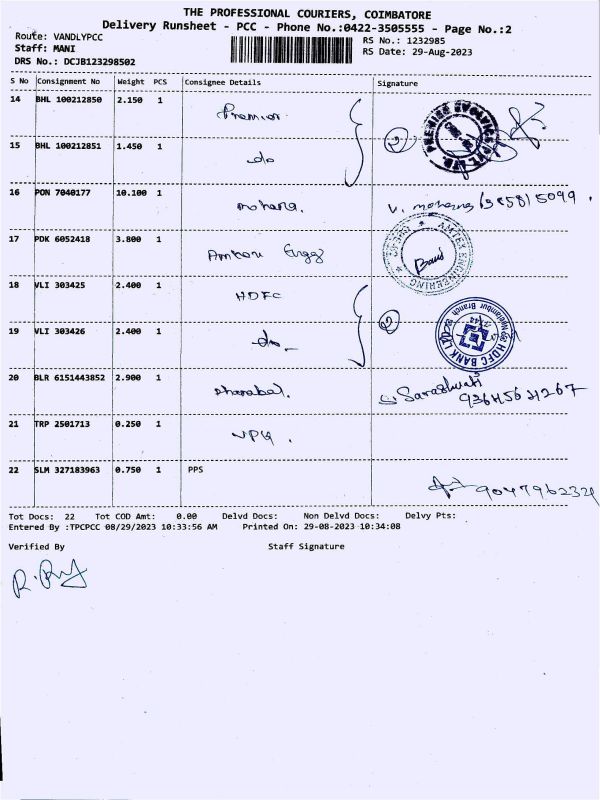 THE PROFESSIONAL COURIERS, COIMBATORE
Delivery Runsheet - PCC - Phone No.:0422-3505555 - Page No.:2
Route: VANDLYPCC
RS No.: 1232985
Staff: MANI
RS Date: 29-Aug-2023
DRS No.: DCJB123298502
S No Consignment No Weight PCS Consignee Details Signature
14 BHL 100212850 2.150 1 Premier 2
15 BHL 100212851 1.450 1 do
16 PON 7040177 10.100 1 mohana. V. mohana
17 PDK 6052418 3.800 1 Engg
AMTEX ENGINEERING
18 VLI 303425 2.400 1 HDFC 2
HDFC BANK
19 VLI 303426 2.400 1 do
20 BLR 6151443852 2.900 1 Saraswati
21 TRP 2501713 0.250 1
22 SLM 327183963 0.750 1 PPS
Tot Docs: 22 Tot COD Amt: 0.00 Delvd Docs: Non Delvd Docs: Delvy Pts:
Entered By :TPCPCC 08/29/2023 10:33:56 AM Printed On: 29-08-2023 10:34:08
Verified By Staff Signature